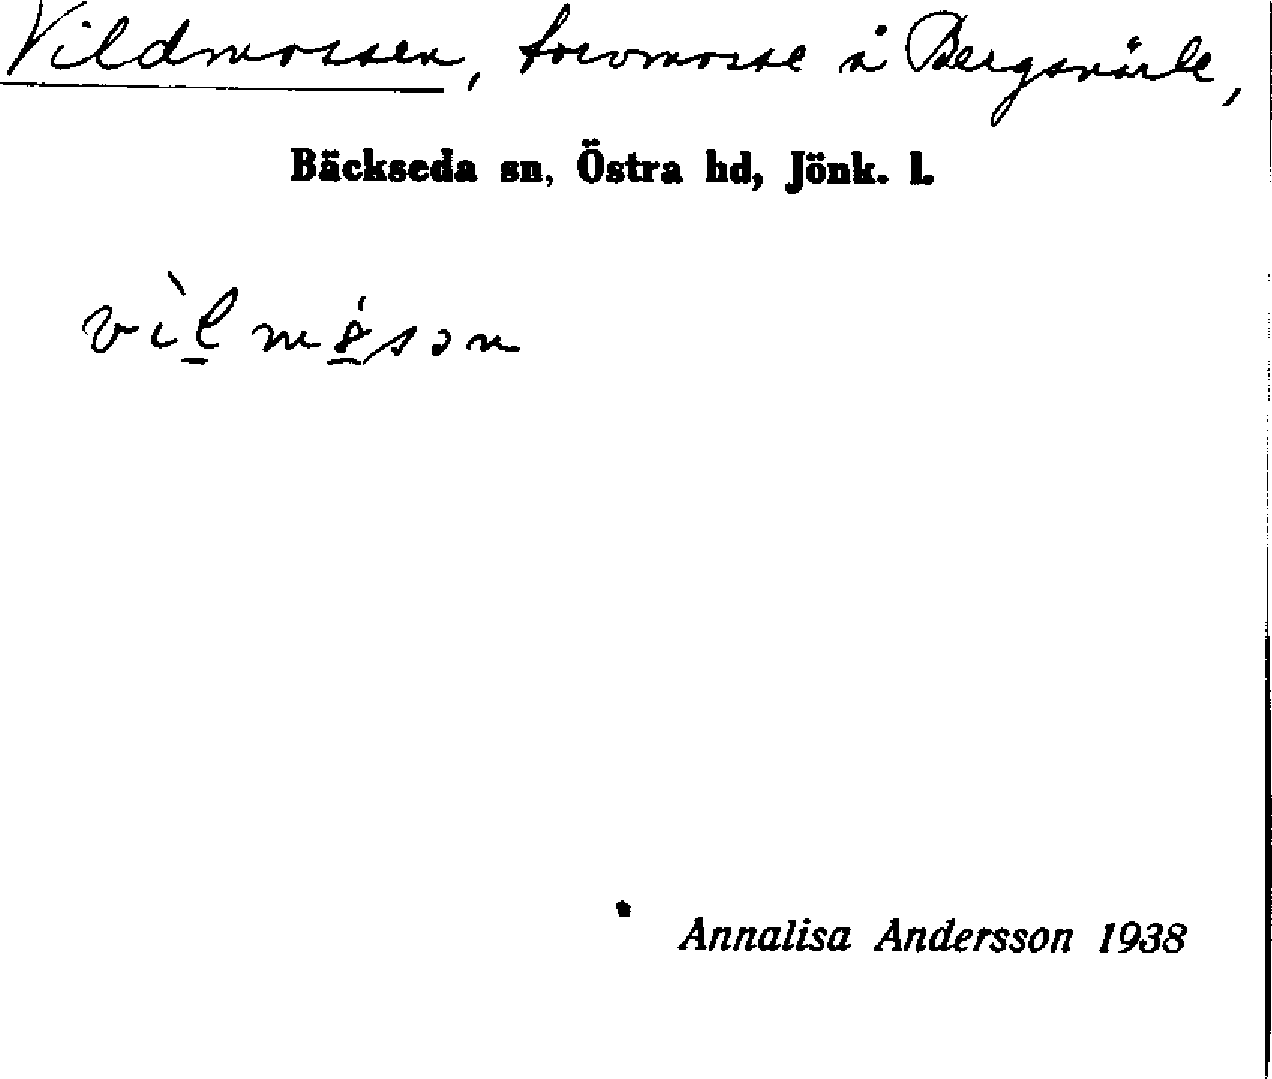 Vildmossen, torvmosse å Bergsnärle,
Bäckseda sn, Östra hd, Jönk. l.
Annalisa Andersson 1938